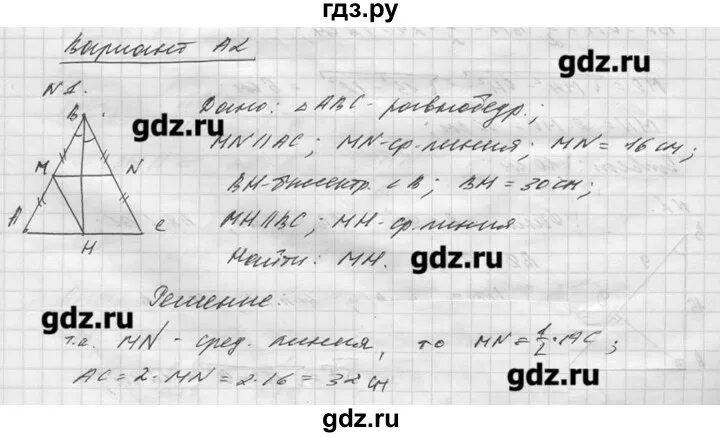 гдз.ру
Вариант А2
gdz.ru
N 1.
B
Дано: △ABC - равнобедр.;
gdz.ru
MN ∥ AC; MN - ср. линия; MN = 16 см;
M N
BH - биссектр. ∠B; BH = 30 см;
A C
MH ∥ BC; MH - ср. линия
H
Найти: MH.
gdz.ru
Решение:
gdz.ru
т.к. MN - сред. линия, то MN = 1/2 · AC;
AC = 2 · MN = 2 · 16 = 32 см
gdz.ru
gdz.ru